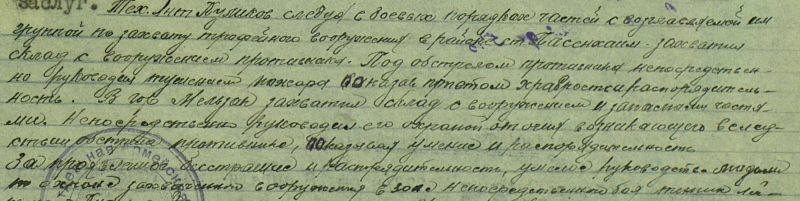 заслуг. Тех. Лнт Пушков следуя в боевых порядках частей с возглавляемой им
группой по захвату трофейного вооружения в районе ст. захватил
склад с вооружением противника. Под обстрелом противника непосредствен-
но руководил тушением пожара показав при этом храбрость и распорядитель-
ность. В гор. Мельзак захватил склад с вооружением и запасными частя-
ми. Непосредственно руководил его охраной от огня возникающего вслед-
ствии обстрела противника, показывая умение и распорядительность
За проявленное бесстрашие и распорядительность, умелое руководство людьми
по охране захваченного вооружения в зоне непосредственного боя